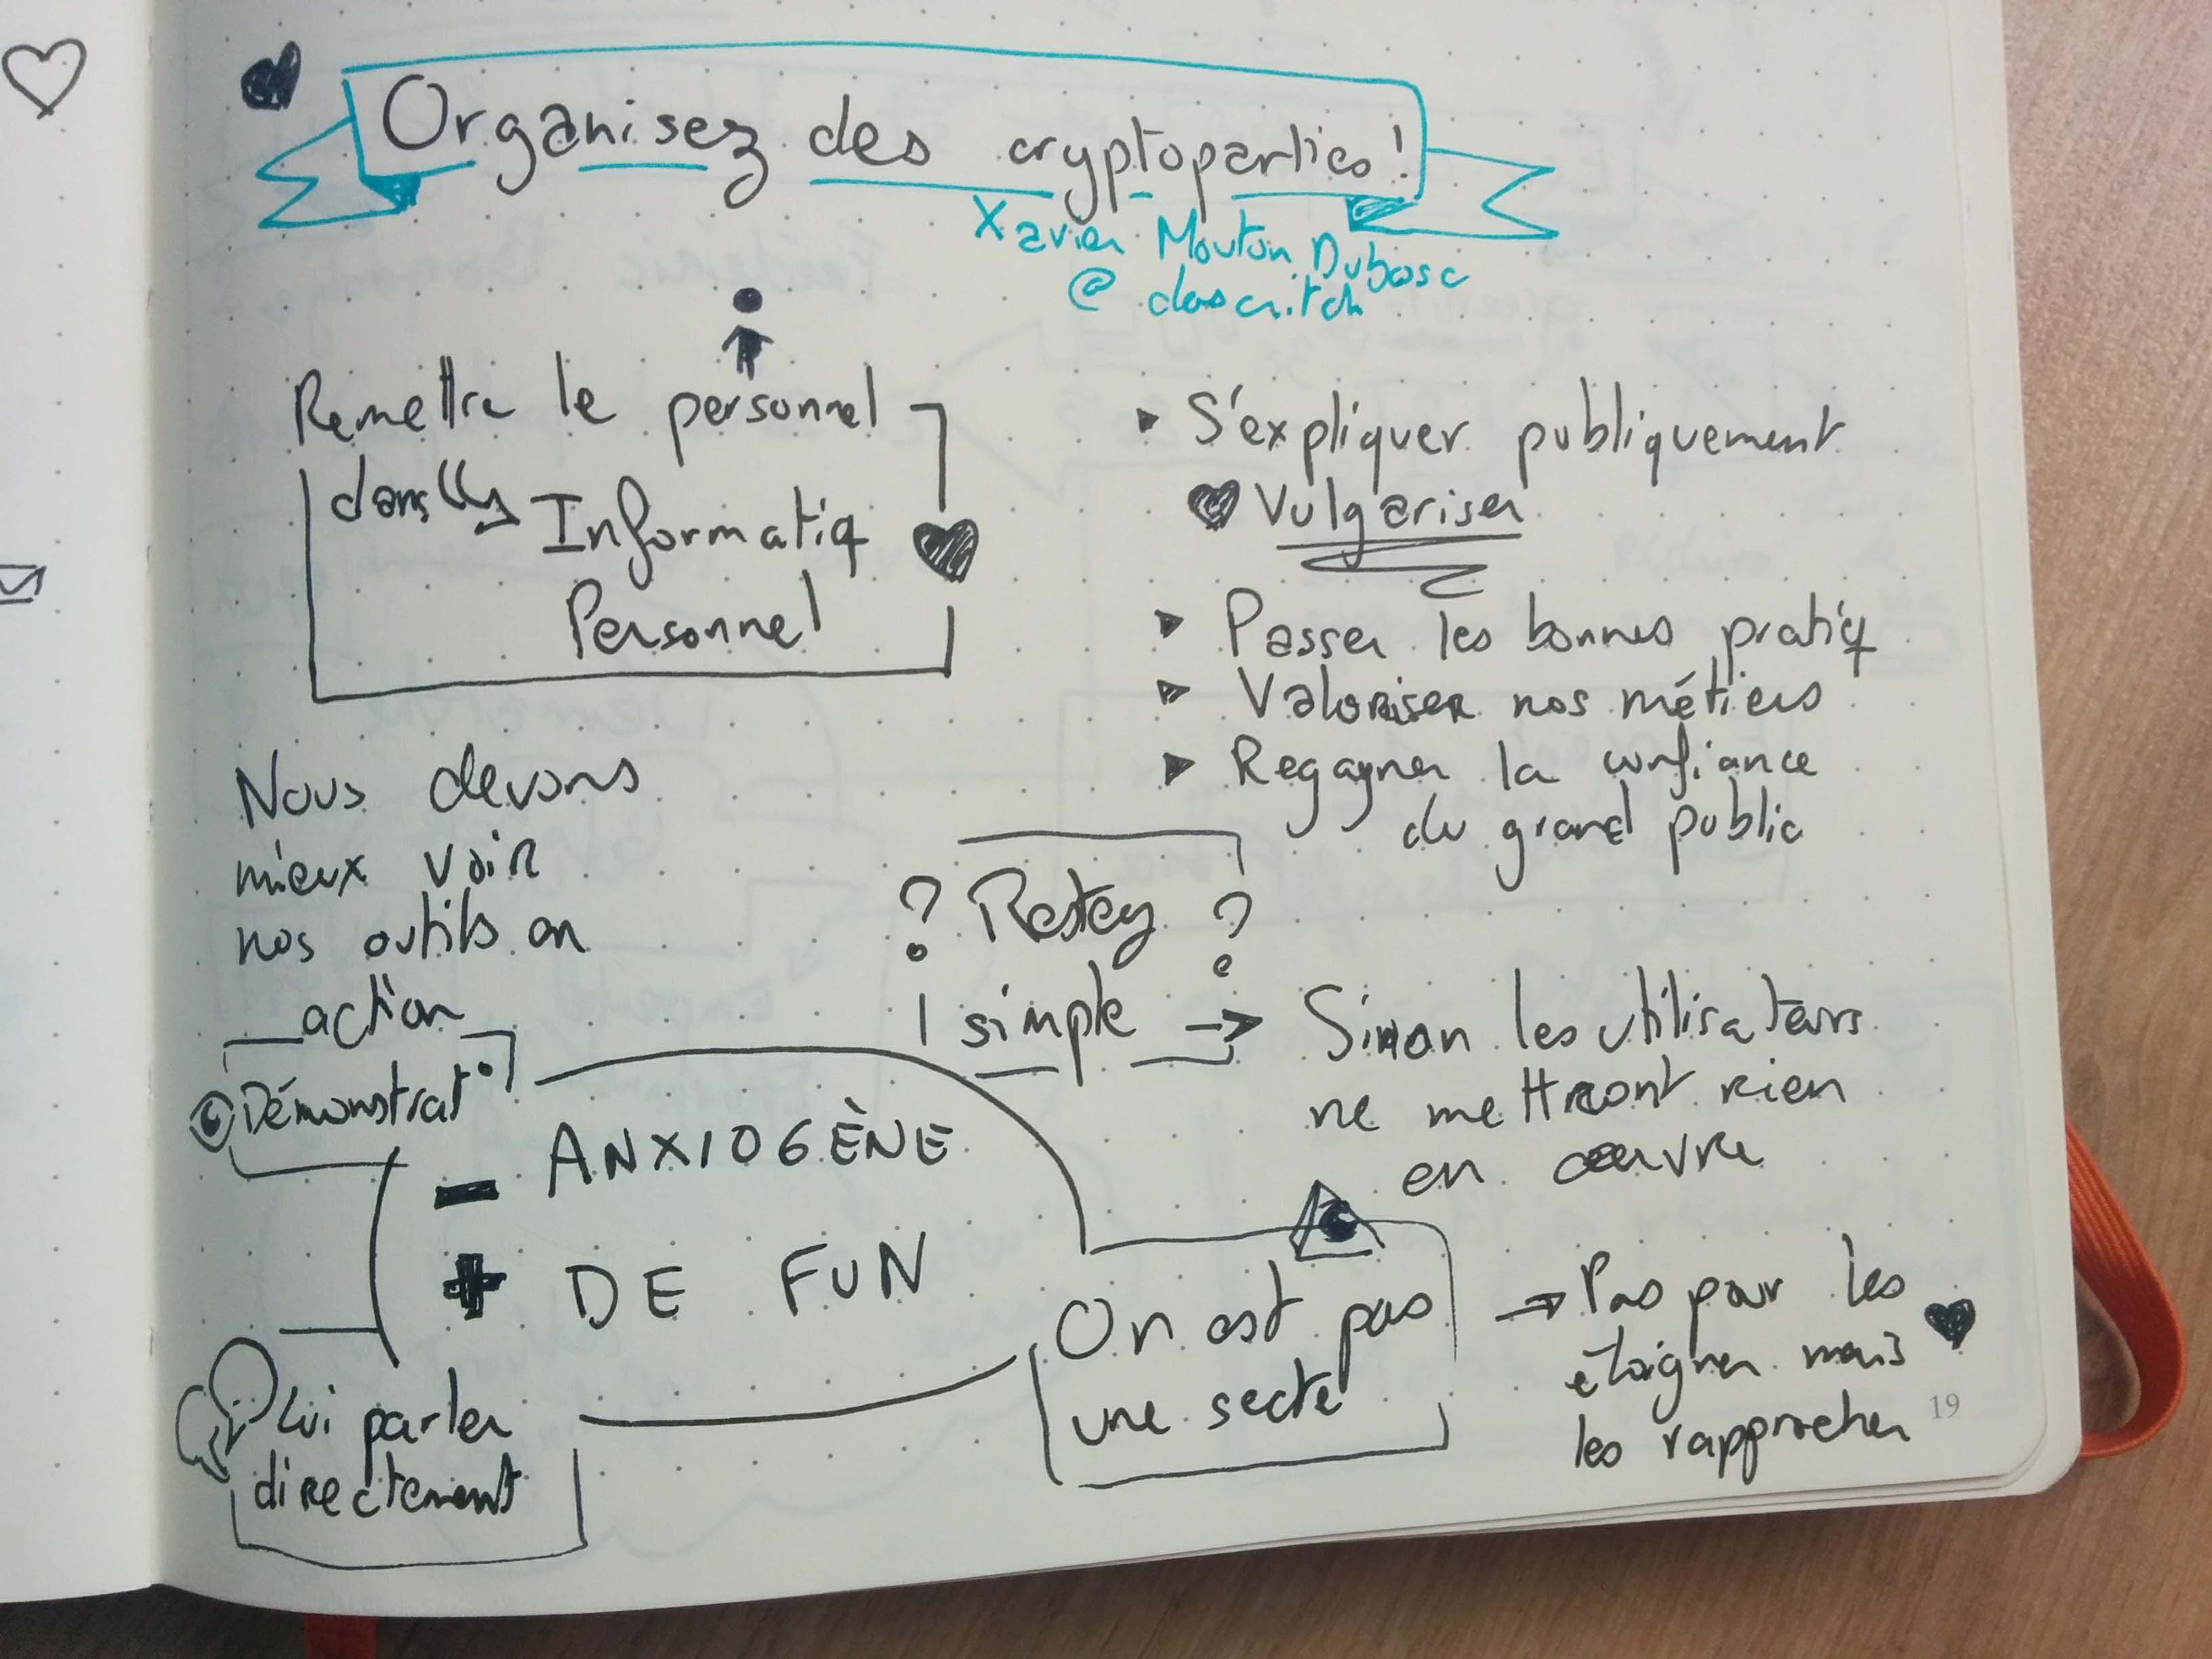 Organisez des cryptoparties !
Xavier Mouton Dubosc
@dascritch
Remettre le personnel
dans
Informatiq
Personnel
S'expliquer publiquement
Vulgariser
Passer les bonnes pratiq
Valoriser nos métiers
Regagner la confiance
du grand public
Nous devons
mieux voir
nos outils en
action
Démonstrat°
? Restez ?
simple → Sinon les utilisateurs
ne mettront rien
en œuvre
- ANXIOGÈNE
+ DE FUN
Lui parler
directement
On est pas
une secte
→ Pas pour les
éloigner mais
les rapprocher
19